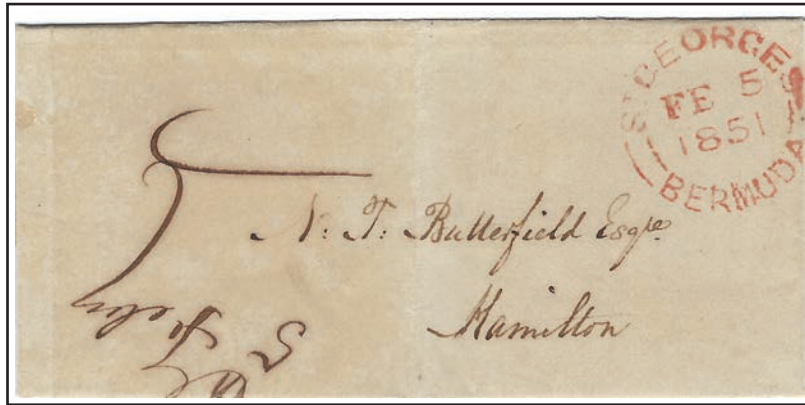 ST. GEORGES
FE 5
1851
BERMUDA
N: T: Butterfield Esqre.
Hamilton
5